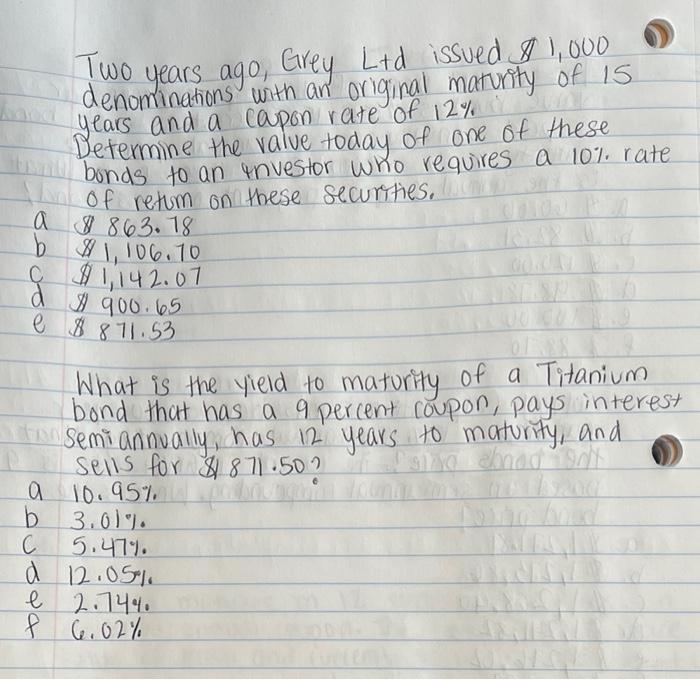 Two years ago, Grey Ltd issued $ 1,000
denominations with an original maturity of 15
years and a coupon rate of 12%.
Determine the value today of one of these
bonds to an investor who requires a 10% rate
of return on these securities.
a $ 863.78
b $ 1,106.70
c $ 1,142.07
d $ 900.65
e $ 871.53
What is the yield to maturity of a Titanium
bond that has a 9 percent coupon, pays interest
semi annually, has 12 years to maturity, and
sells for $ 871.50?
a 10.95%
b 3.01%.
c 5.47%.
d 12.05%.
e 2.74%.
f 6.02%